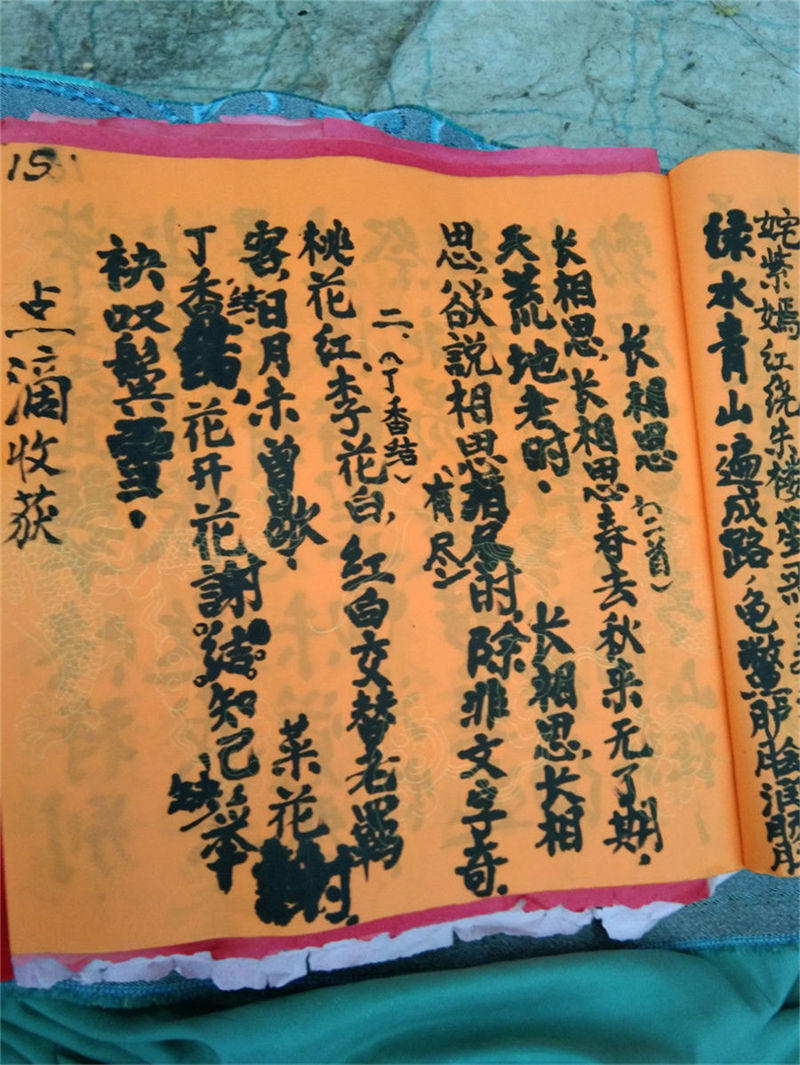 紫嫣红绕朱楼
绿水青山遍成路,龟鳖
长相思(二首)
长相思,长相思春去秋来无了期,
天荒地老时. 长相思,长相
思,欲説相思有尽时,除非文字奇.
有尽
二、(丁香结)
桃花红,李花白,红白交替老羁
客,日月未曾歇. 菜花謝
结
丁香结,花开花謝结知己,举
缺
袂叹鬓雪.
点滴收获
15